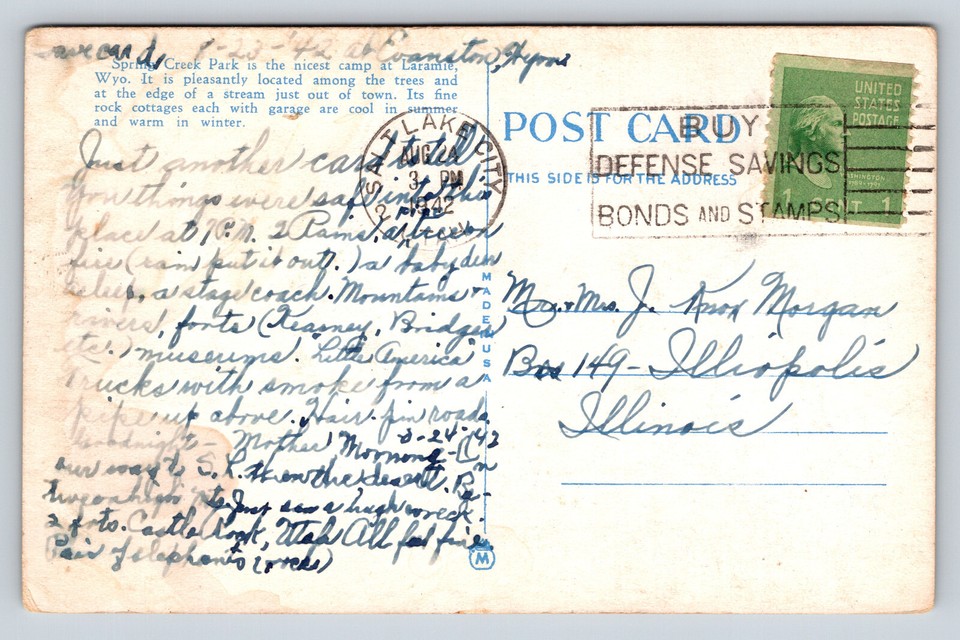 card, 8-23-'42 at Evanston, Wyom
Spring Creek Park is the nicest camp at Laramie,
Wyo. It is pleasantly located among the trees and
at the edge of a stream just out of town. Its fine
rock cottages each with garage are cool in summer
and warm in winter.
Just another card to tell
you things we've saf into this
place at P.M. 2 Rams, a tree on
fire (rain put it out.) a baby deer
a stage coach. Mountains &
rivers, forts (Kearney, Bridger
etc.) museums. "Little America"
Trucks with smoke from a
pipe up above. Hair-pin roads.
Goodnight - Mother
8-24-'42
Morning - On
our way to S. L. then the desert.
Just saw a high wreck.
2 forts. Castle Rock, Utah All feel fine
Pair of elephants (rocks)
SALT LAKE CITY
AUG 24
3 PM
1942
UTAH
BUY
DEFENSE SAVINGS
BONDS AND STAMPS
UNITED
STATES
POSTAGE
WASHINGTON
1789-1797
1 CENT 1
POST CARD
THIS SIDE IS FOR THE ADDRESS
MADE IN USA
Mr. & Mrs. J. Knox Morgan
Box 149 - Illiopolis
Illinois
M